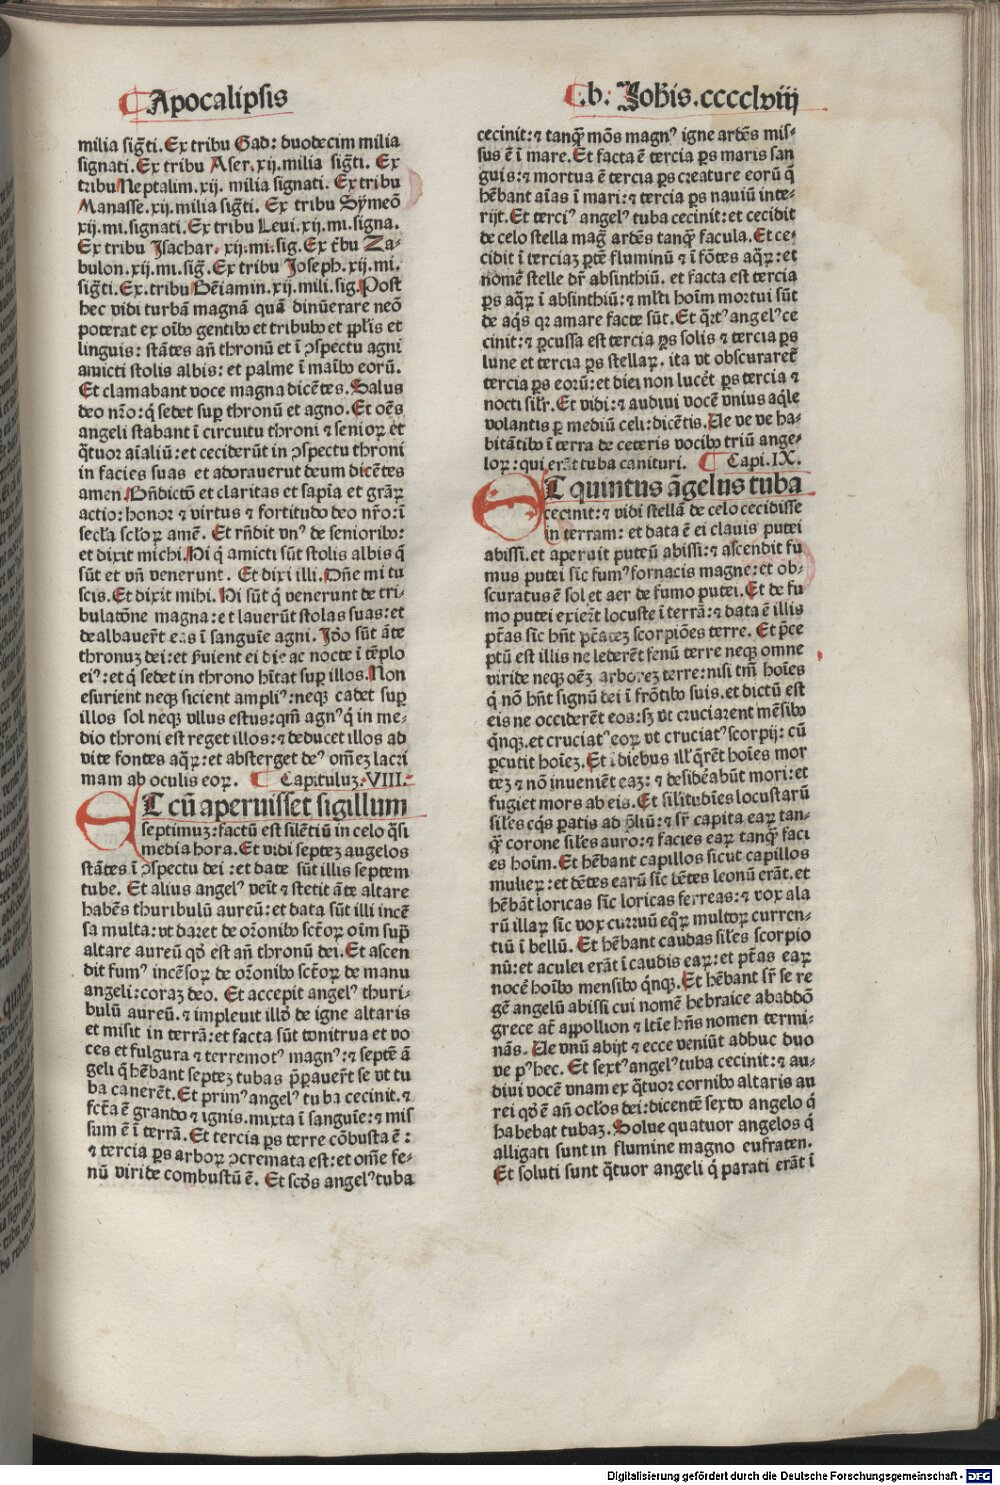 Apocalipsis
.b. Johis.cccclviij
milia sig̃ti. Ex tribu Gad: duodecim milia
signati. Ex tribu Aser.xij.milia sig̃ti. Ex
tribu Neptalim.xij. milia signati. Ex tribu
Manasse.xij.milia sig̃ti. Ex tribu Symeõ
xij.mi.signati. Ex tribu Leui.xij.mi.signa.
Ex tribu Isachar. xij.mi.sig. Ex t̃bu Za-
bulon.xij.mi.sig̃. Ex tribu Joseph.xij.mi.
sig̃ti. Ex.tribu Bẽiamin.xij.mili.sig. Post
hec vidi turbã magnã quã dinũerare neõ
poterat ex oĩbꝰ gentibꝰ et tribubꝰ et pp̃lis et
linguis: stãtes añ thronũ et ĩ ↄspectu agni
amicti stolis albis: et palme ĩ maĩbꝰ eorũ.
Et clamabant voce magna dicẽtes. Salus
deo nr̃o: q̃ sedet suꝑ thronũ et agno. Et oẽs
angeli stabant ĩ circuitu throni ⁊ senioꝝ et
q̃tuor aĩaliũ: et ceciderũt in ↄspectu throni
in facies suas et adorauerut deum dicẽtes
amen. Bñdictõ et claritas et sapĩa et grãꝝ
actio: honor ⁊ virtus ⁊ fortitudo deo nr̃o: ĩ
secl̃a scl̃oꝝ amẽ. Et rñdit vnꝰ de senioribꝰ:
et dixit michi. Hi q̃ amicti sũt stolis albis q̃
sũt et vñ venerunt. Et dixi illi. Dñe mi tu
scis. Et dixit mihi. Hi sũt q̃ venerunt de tri-
bulatõne magna: et lauerũt stolas suas: et
dealbauer̃t eas ĩ sanguĩe agni. Jõo sũt ãte
thronuꝫ dei: et ẜuient ei die ac nocte ĩ tẽplo
eiꝰ: et q̃ sedet in throno hĩtat suꝑ illos. Non
esurient neqꝫ sicient ampliꝰ: neqꝫ cadet suꝑ
illos sol neqꝫ vllus estus: qm̃ agnꝰ q̃ in me-
dio throni est reget illos: ⁊ deducet illos ad
vite fontes aq̃ꝝ: et absterget deꝰ om̃eꝫ lacri
mam ab oculis eoꝝ. Capituluꝫ.VIII.
Et cũ aperuisset sigillum
septimuꝫ: factũ est silẽtiũ in celo q̃si
media hora. Et vidi septeꝫ angelos
stãtes ĩ ↄspectu dei: et date sũt illis septem
tube. Et alius angelꝰ veĩt ⁊ stetit ãte altare
habẽs thuribulũ aureũ: et data sũt illi incẽ
sa multa: vt daret de or̃onibꝰ sct̃oꝝ oĩm sup̃
altare aureũ qđ est añ thronũ dei. Et ascen
dit fumꝰ incẽsoꝝ de or̃onibꝰ sct̃oꝝ de manu
angeli: coraꝫ deo. Et accepit angelꝰ thuri-
bulũ aureũ. ⁊ impleuit illđ de igne altaris
et misit in terrã: et facta sũt tonitrua et vo
ces et fulgura ⁊ terremotꝰ magnꝰ: ⁊ septẽ ã
geli q̃ hẽbant septeꝫ tubas p̃pauer̃t se vt tu
ba canerẽt. Et primꝰ angelꝰ tuba cecinit. ⁊
fct̃a ẽ grando ⁊ ignis.mixta ĩ sanguĩe: ⁊ mis
sum ẽ ĩ terrã. Et tercia ꝑs terre cõbusta ẽ:
⁊ tercia ꝑs arboꝝ ↄcremata est: et om̃e fe-
nũ viride combustũ ẽ. Et scđs angelꝰ tuba
cecinit: ⁊ tanqꝫ mõs magnꝰ igne ardẽs mis-
sus ẽ ĩ mare. Et facta ẽ tercia ꝑs maris san
guis: ⁊ mortua ẽ tercia ꝑs creature eorũ q̃
hẽbant aĩas ĩ mari: ⁊ tercia ꝑs nauiũ inte-
rijt. Et terciꝰ angelꝰ tuba cecinit: et cecidit
de celo stella mag̃ ardẽs tanqꝫ facula. Et ce-
cidit ĩ terciaꝫ ꝑtẽ fluminũ ⁊ ĩ fõtes aq̃ꝝ: et
nomẽ stelle dr̃ absinthiũ. et facta est tercia
ꝑs aq̃ꝝ ĩ absinthiũ: ⁊ ml̃ti hoĩm mortui sũt
de aq̃s qꝛ amare facte sũt. Et q̃rtꝰ angelꝰ ce
cinit: ⁊ ꝑcussa est tercia ꝑs solis ⁊ tercia ꝑs
lune et tercia ꝑs stellaꝝ. ita vt obscuraret̃
tercia ꝑs eorũ: et diei non lucẽt ꝑs tercia ⁊
nocti sil̃r. Et vidi: ⁊ audiui vocẽ vnius aq̃le
volantis ꝑ mediũ celi: dicẽtis. Ue ve ve ha-
bitãtibꝰ ĩ terra de ceteris vocibꝰ triũ ange-
loꝝ: qui erãt tuba canituri. Capi.IX.
Et quintus ãgelus tuba
cecinit: ⁊ vidi stellã de celo cecidisse
in terram: et data ẽ ei clauis putei
abissi. et aperuit puteũ abissi: ⁊ ascendit fu
mus putei sic̃ fumꝰ fornacis magne: et ob-
scuratus ẽ sol et aer de fumo putei. Et de fu
mo putei exier̃t locuste ĩ terrã: ⁊ data ẽ illis
pt̃as sic̃ hñt pt̃ateꝫ scorpiões terre. Et p̃ce
ptũ est illis ne lederẽt fenũ terre neqꝫ omne
viride neqꝫ oẽꝫ arboreꝫ terre: nisi tm̃ hoĩes
q̃ nõ hñt signũ dei ĩ frõtibꝰ suis. et dictũ est
eis ne occiderẽt eos: sꝫ vt cruciarent mẽsibꝰ
q̃nqꝫ. et cruciatꝰ eoꝝ vt cruciatꝰ scorpij: cũ
ꝑcutit hoĩeꝫ. Et ĩ diebus ill̃ q̃rẽt hoĩes mor
teꝫ ⁊ nõ inueniẽt eaꝫ: ⁊ desideẽabũt mori: et
fugiet mors ab eis. Et sil̃itudĩes locustarũ
sil̃es eq̃s ꝑatis ad p̃liũ: ⁊ sr̃ capita eaꝝ tan-
qꝫ corone sil̃es auro: ⁊ facies eaꝝ tanqꝫ faci
es hoĩm. Et hẽbant capillos sicut capillos
mulieꝝ: et dẽtes earũ sic̃ dẽtes leonũ erãt. et
hẽbãt loricas sic̃ loricas ferreas: ⁊ vox ala
rũ illaꝝ sic̃ vox curruũ eq̃ꝝ multoꝝ curren-
tiũ ĩ bellũ. Et hẽbant caudas sil̃es scorpio
nũ: et aculei erãt ĩ caudis eaꝝ: et pt̃as eaꝝ
nocẽ hoĩbꝰ mensibꝰ q̃nqꝫ. Et hẽbant sr̃ se re
gẽ angelũ abissi cui nomẽ hebraice abaddõ
grece at̃ appollion ⁊ lt̃ie hñs nomen termi-
nãs. Ue vnũ abijt ⁊ ecce veniũt adhuc duo
ve pꝰ hec. Et sextꝰ angelꝰ tuba cecinit: ⁊ au-
diui vocẽ vnam ex q̃tuor cornibꝰ altaris au
rei qđ ẽ añ ocl̃os dei: dicentẽ sexto angelo q̃
habebat tubaꝫ. Solue quatuor angelos q̃
alligati sunt in flumine magno eufraten.
Et soluti sunt q̃tuor angeli q̃ parati erãt ĩ
Digitalisierung gefördert durch die Deutsche Forschungsgemeinschaft - DFG